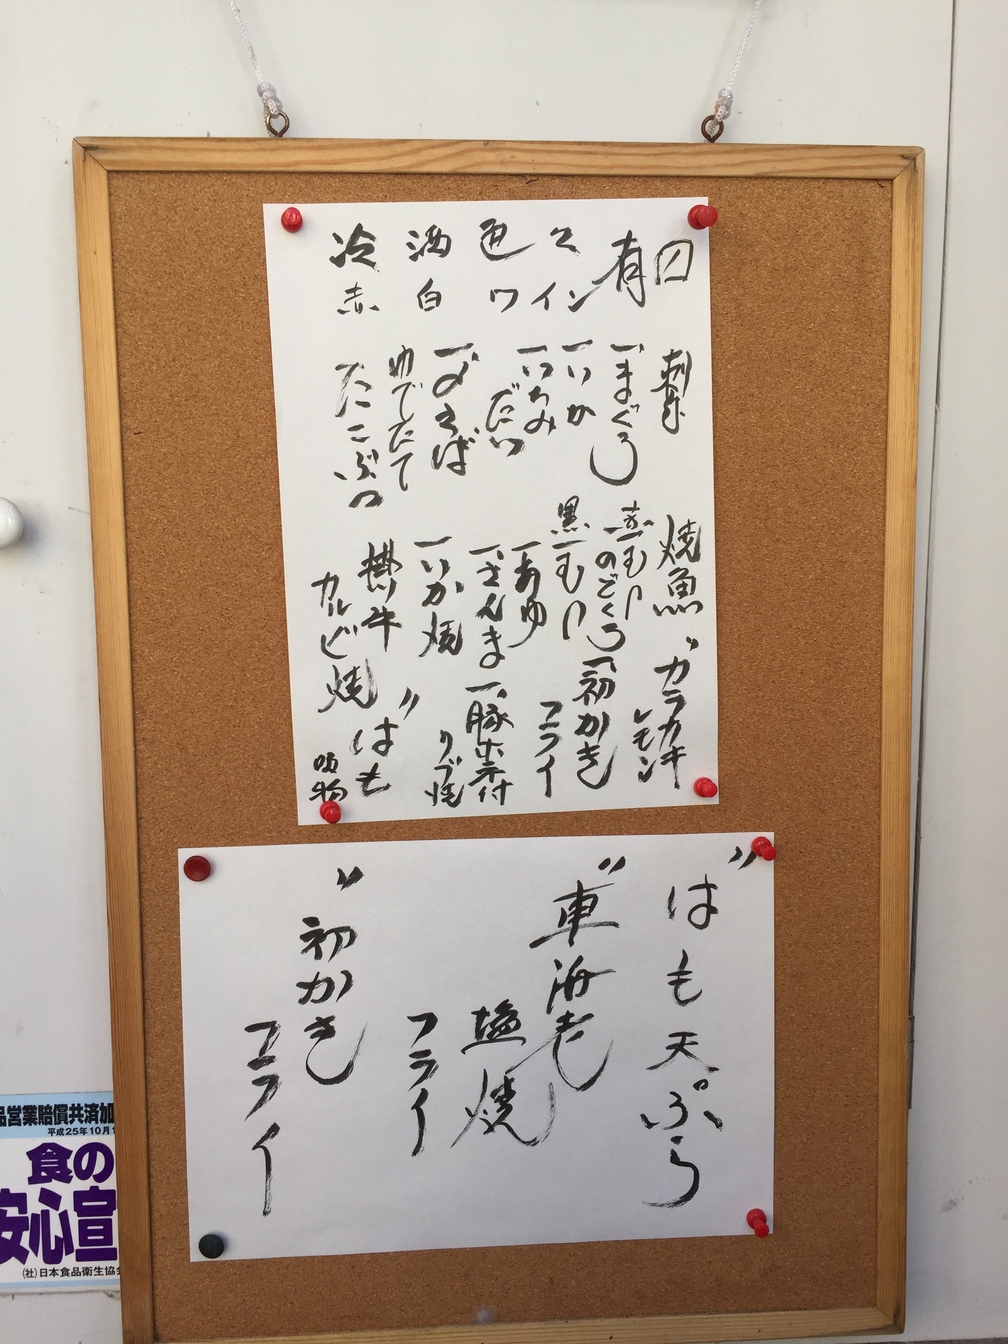 冷酒色々有
赤白ワイン
刺身
一、まぐろ
一、いか
一、いちみ
だい
一、〆さば
ゆでたて
たこぶつ
焼魚
赤むつ
のどくろ
黒むつ
一、あゆ
一、さんま
一、いか焼
掛川牛
カルビ焼
〃カラカキ
レモン
一、初かき
フライ
一、豚骨付
リブ焼
〃はも
吸物
〃はも天ぷら
〃車海老
塩焼
フライ
〃初かき
フライ
品営業賠償共済加
平成25年10月1
食の
安心宣
(社)日本食品衛生協会